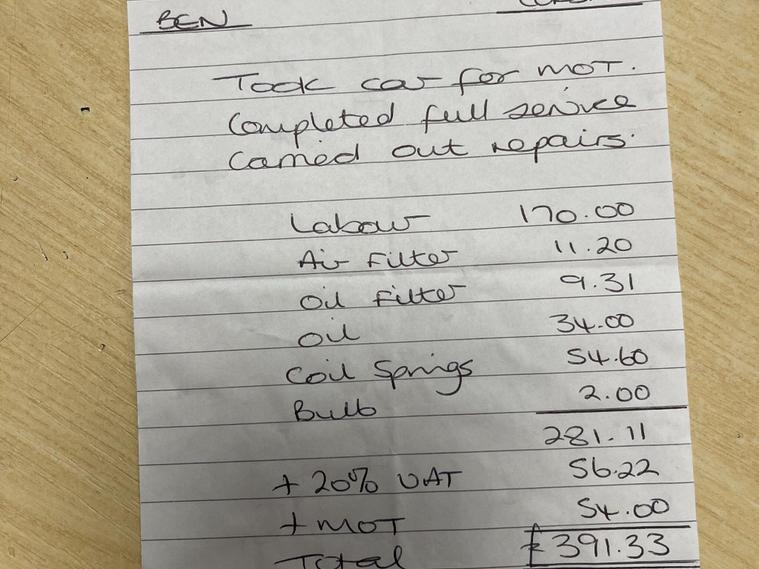 BEN
Took car for MOT.
Completed full service
Carried out repairs.
Labour 170.00
Air Filter 11.20
Oil Filter 9.31
Oil 34.00
Coil Springs 54.60
Bulb 2.00
281.11
+ 20% VAT 56.22
+ MOT 54.00
Total £391.33